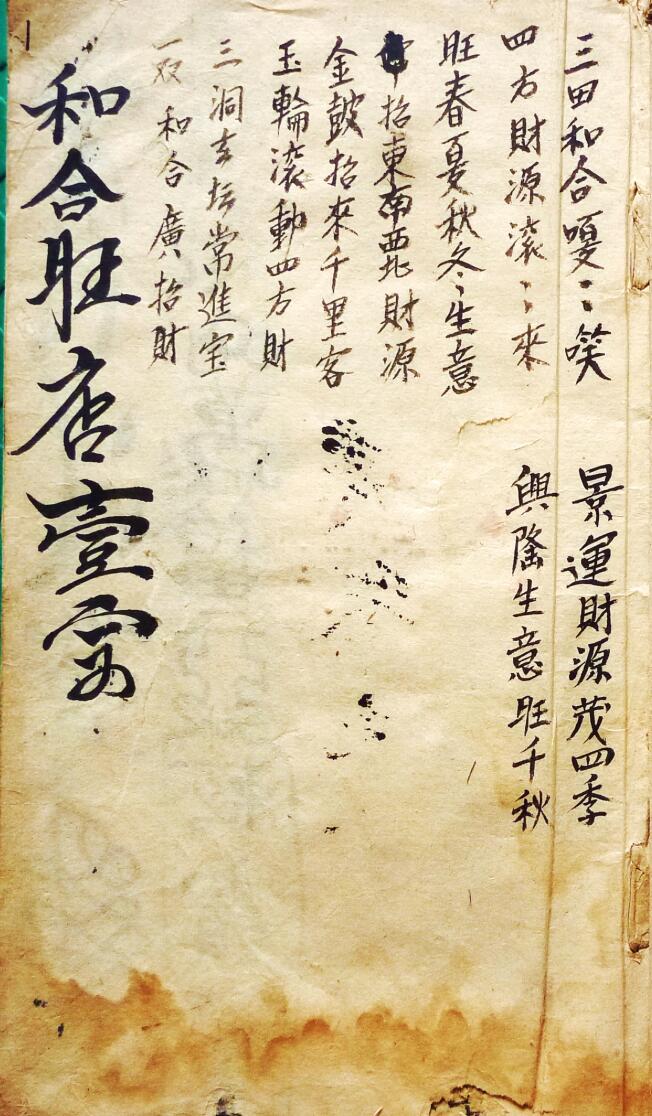 三田和合嗄〻笑
四方財源滚〻來
旺春夏秋冬〻生意
招東南西北財源
金鼓招來千里客
玉輪滚動四方財
三洞玄坛常進宝
一双和合廣招財
景運財源茂四季
興隆生意旺千秋
和合旺店壹